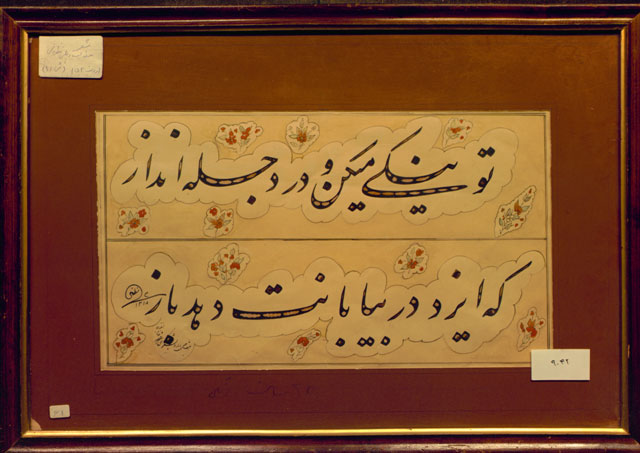 تو نیکی میکن و در دجله انداز
که ایزد در بیابانت دهد باز
۹۰۴۲